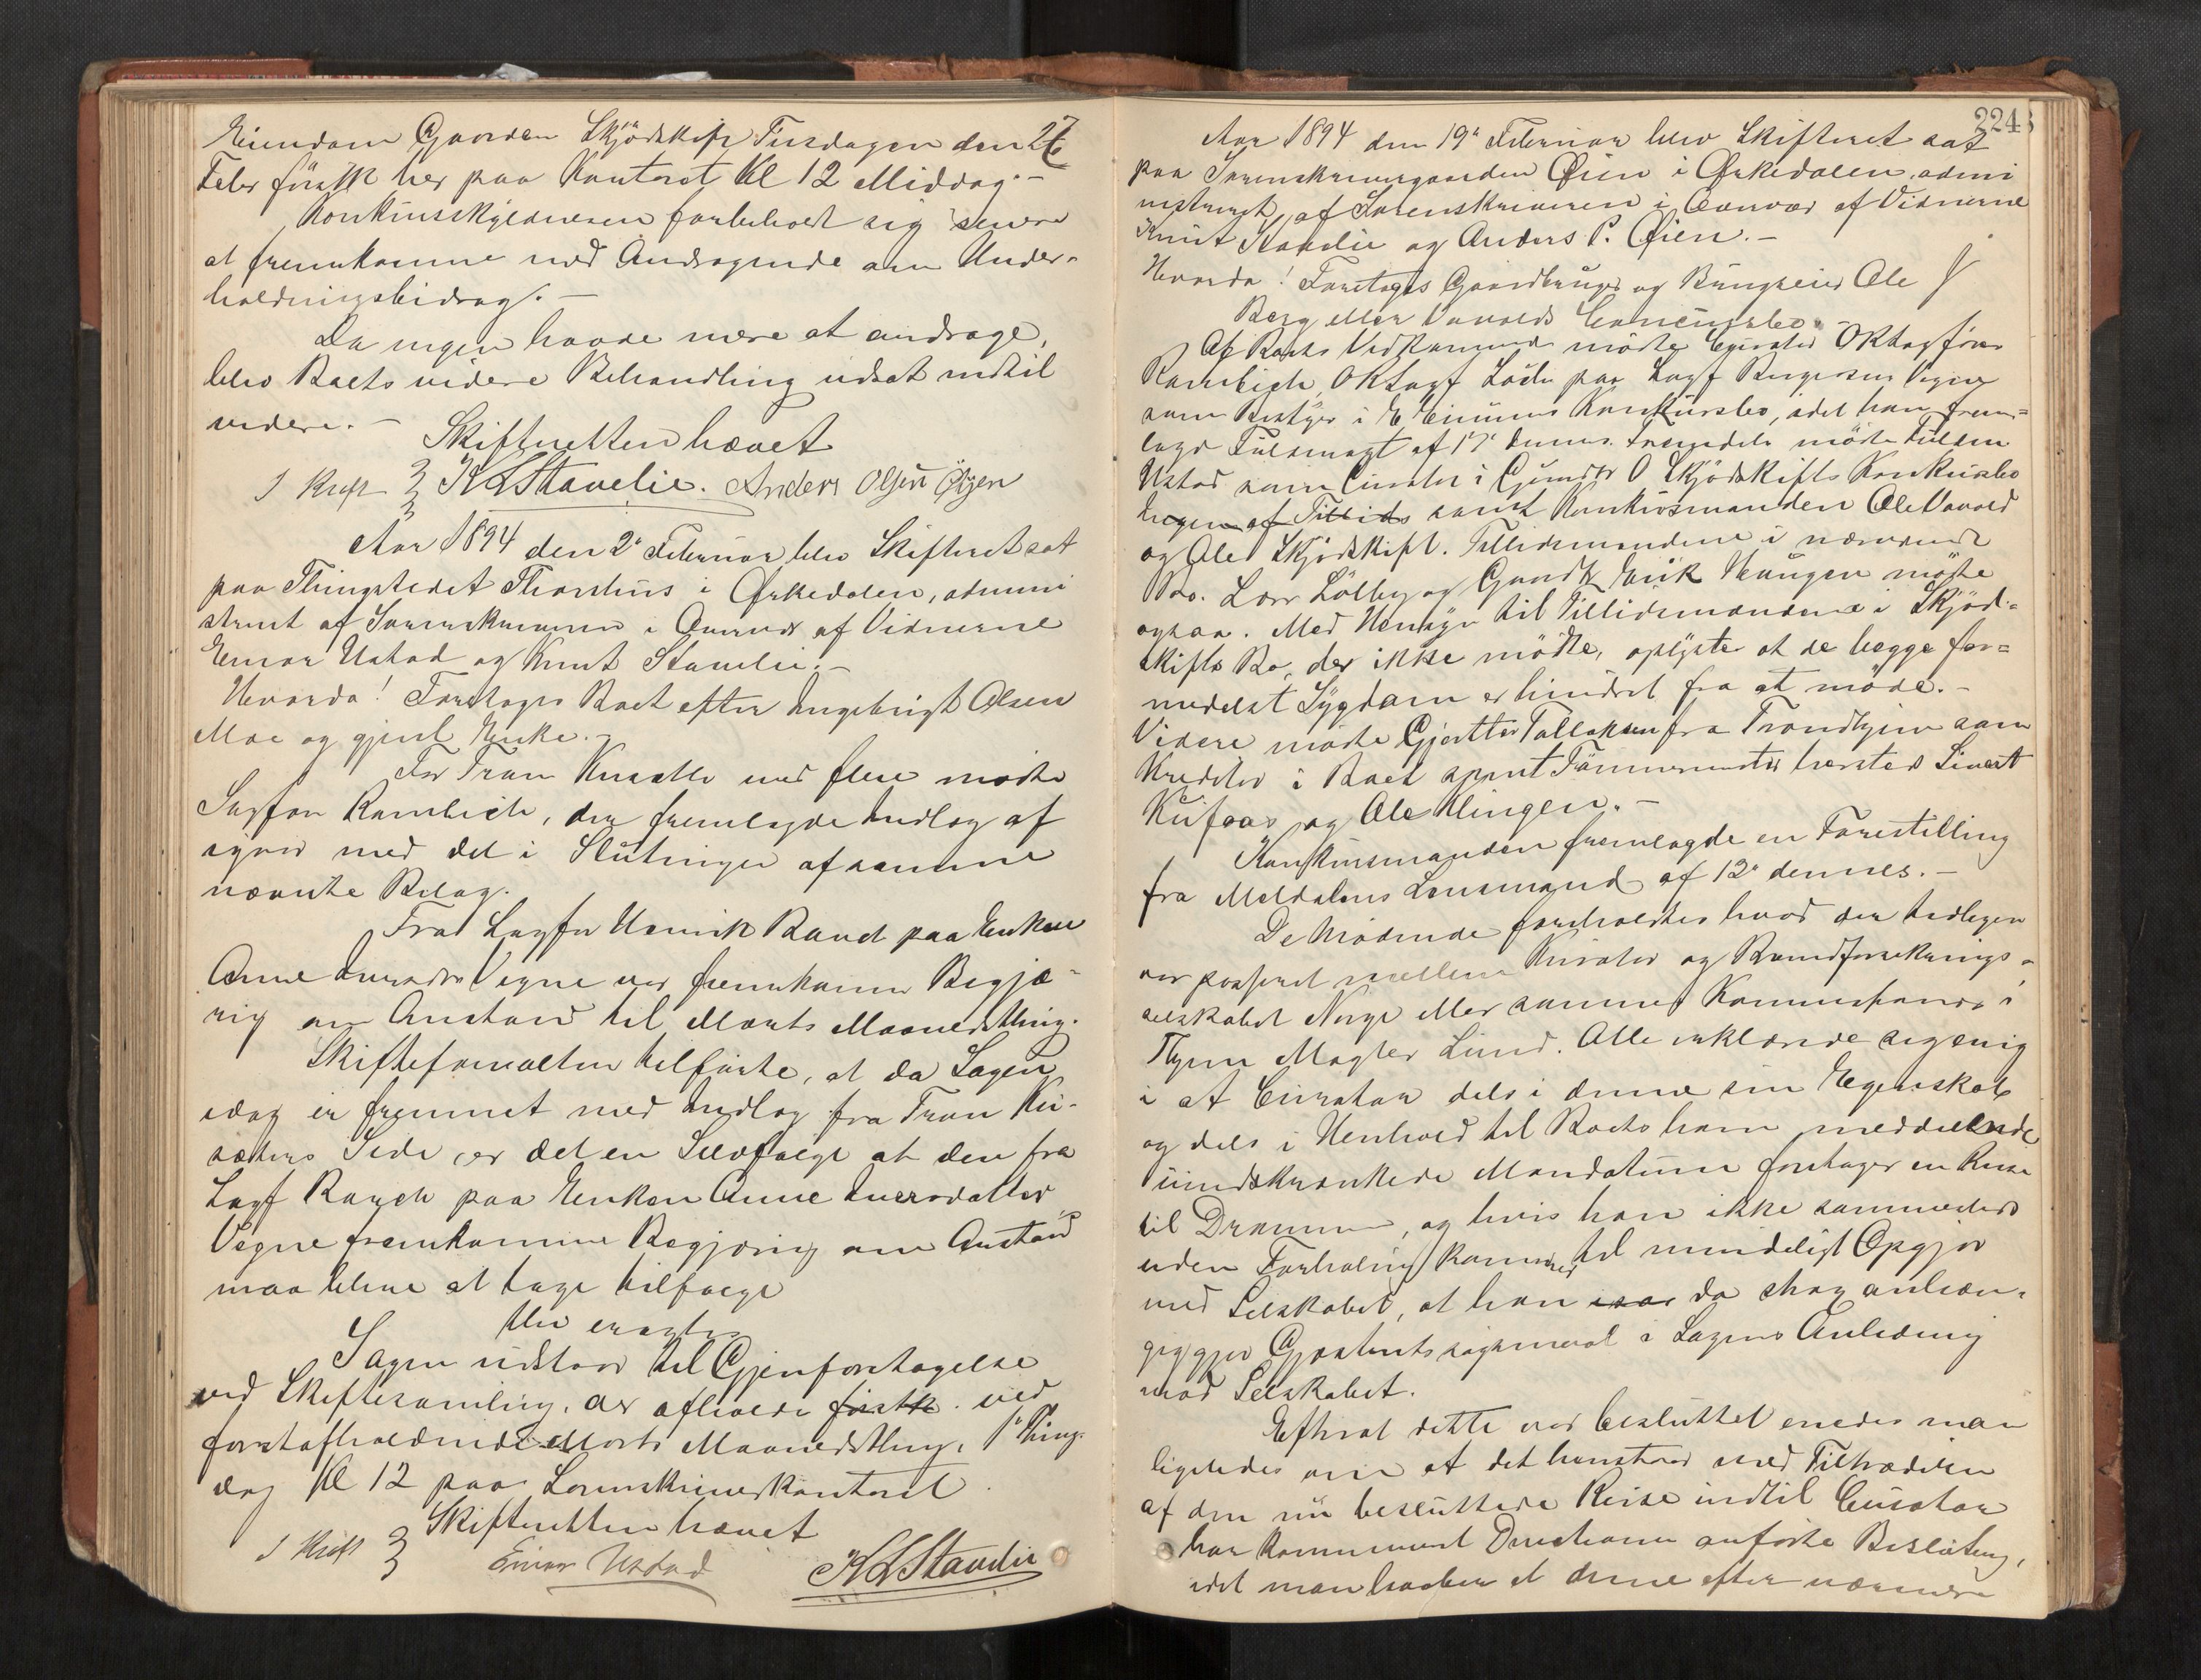 Eiendom Gaarden Skjødskift Tirsdagen den 27
Febr førstk her paa Kontoret Kl 12 Middag.-
Konkursskyldneren forbeholdt sig senere
at fremkomme med Andragende om Under-
holdningsbidrag. -
Da ingen havde mere at andrage,
blev Boets videre Behandling udsat indtil
videre. -
Skifteretten hævet
K L Stavelie. Anders Olsen Øyen
Aar 1894 den 2 Februar blev Skifteret sat
paa Thingstedet Thorshus i Ørkedalen, admini
streret af Sorenskriveren i Overvær af Vidnerne
Einar Ustad og Knut Stavelie. -
Hvorda! Foretoges Boet efter Ingebrigt Olsen
Moe og gjenl Enke. -
For Tron Kusætter med flere mødte
Sagfør Rambech, der fremlagde Indlæg af
igaar med det i Slutningen af samme
nævnte Bilag.
Fra Sagfør Henrik Bauck paa Enken
Anne Iversdtr Vegne var fremkommen Begjæ-
ring om Anstand til Marts Maanedsthing.
Skifteforvalteren tilførte, at da Sagen
idag er fremmet med Indlæg fra Tron Ku-
sæters Side, er det en Selvfølge at den fra
Sagf Bauck paa Enken Anne Iversdatter
Vegne fremkomne Begjæring om Anstand
maa blive at tage tilfølge
blev eragtet
Sagen udstaar til Gjenforetagelse
ved Skiftesamling, der afholdes førstk. ved
førstafholdende Marts Maanedsthing, 1' Thing-
dag Kl 12 paa Sorenskriverkontoret
Skifteretten hævet
Einar Ustad K L Stavelie
224
Aar 1894 den 19 Februar blev Skifteret sat
paa Sorenskrivergaarden Øien i Ørkedalen, admi
nistreret af Sorenskriveren i Overvær af Vidnerne
Knut Stavelie og Anders P. Øien. -
Hvorda! Foretoges Gaardbruger og Brugseier Ole J
Berg eller Vavolds Concursbo. -
Af Boets Vedkommende mødte Curator OKsagfører
Rambech, OKsagf Lødn paa Sagf Birgersens Vegne
som Bestyr i E Eimunds Konkursbo, idet han frem=
lagde Fuldmagt af 17 dennes. Fremdeles mødte Fuldm
Ustad som Curator i Gunder O Skjødskifts Konkursbo
Ingen af Tillids samt Konkursmanden Ole Vavold
og Ole Skjødskift. Tillidsmændene i nærværende
Bo. Lars Løkby og Gaardbr Erik Haugen mødte
ogsaa. Med Hensyn til Tillidsmændene i Skjød-
skifts Bo, der ikke mødte, oplystes at de begge for=
medelst Sygdom er hindret fra at møde. -
Videre mødte Gjørtler Tollaksen fra Trondhjem som
Kreditor i Boet samt Tømmermester Sivert
Kufaas og Ole Klingen. -
Konkursmanden fremlagde en Forestilling
fra Meldalens Lensmand af 12 dennes. -
De Mødende foreholdtes hvad der tidligere
var passeret mellem Kurator og Brandforsikrings-
selskabet Norge eller sammes Kommissionær i
Thjem Mægler Lund. Alle erklærede sig enig
i at Curator dels i denne sin Egenskab
og dels i Henhold til Boets ham meddeelende
uindskrænkede Mandatum foretager en Reise
til Drammen, og hvis han ikke sammesteds
uden Forhaling kommer til mindeligt Opgjør
med Selskabet, at han da strax anhæn-
giggjør Gjæsteretssøgsmaal i Sagens Anledning
mod Selskabet.
Efterat dette var besluttet enedes man
ligeledes om at det henstaar med Tiltrædelsen
af den nu besluttede Reise indtil Curator
har kommuneret Direktionen anførte Beslutning,
idet man haaber at denne efter nærmere